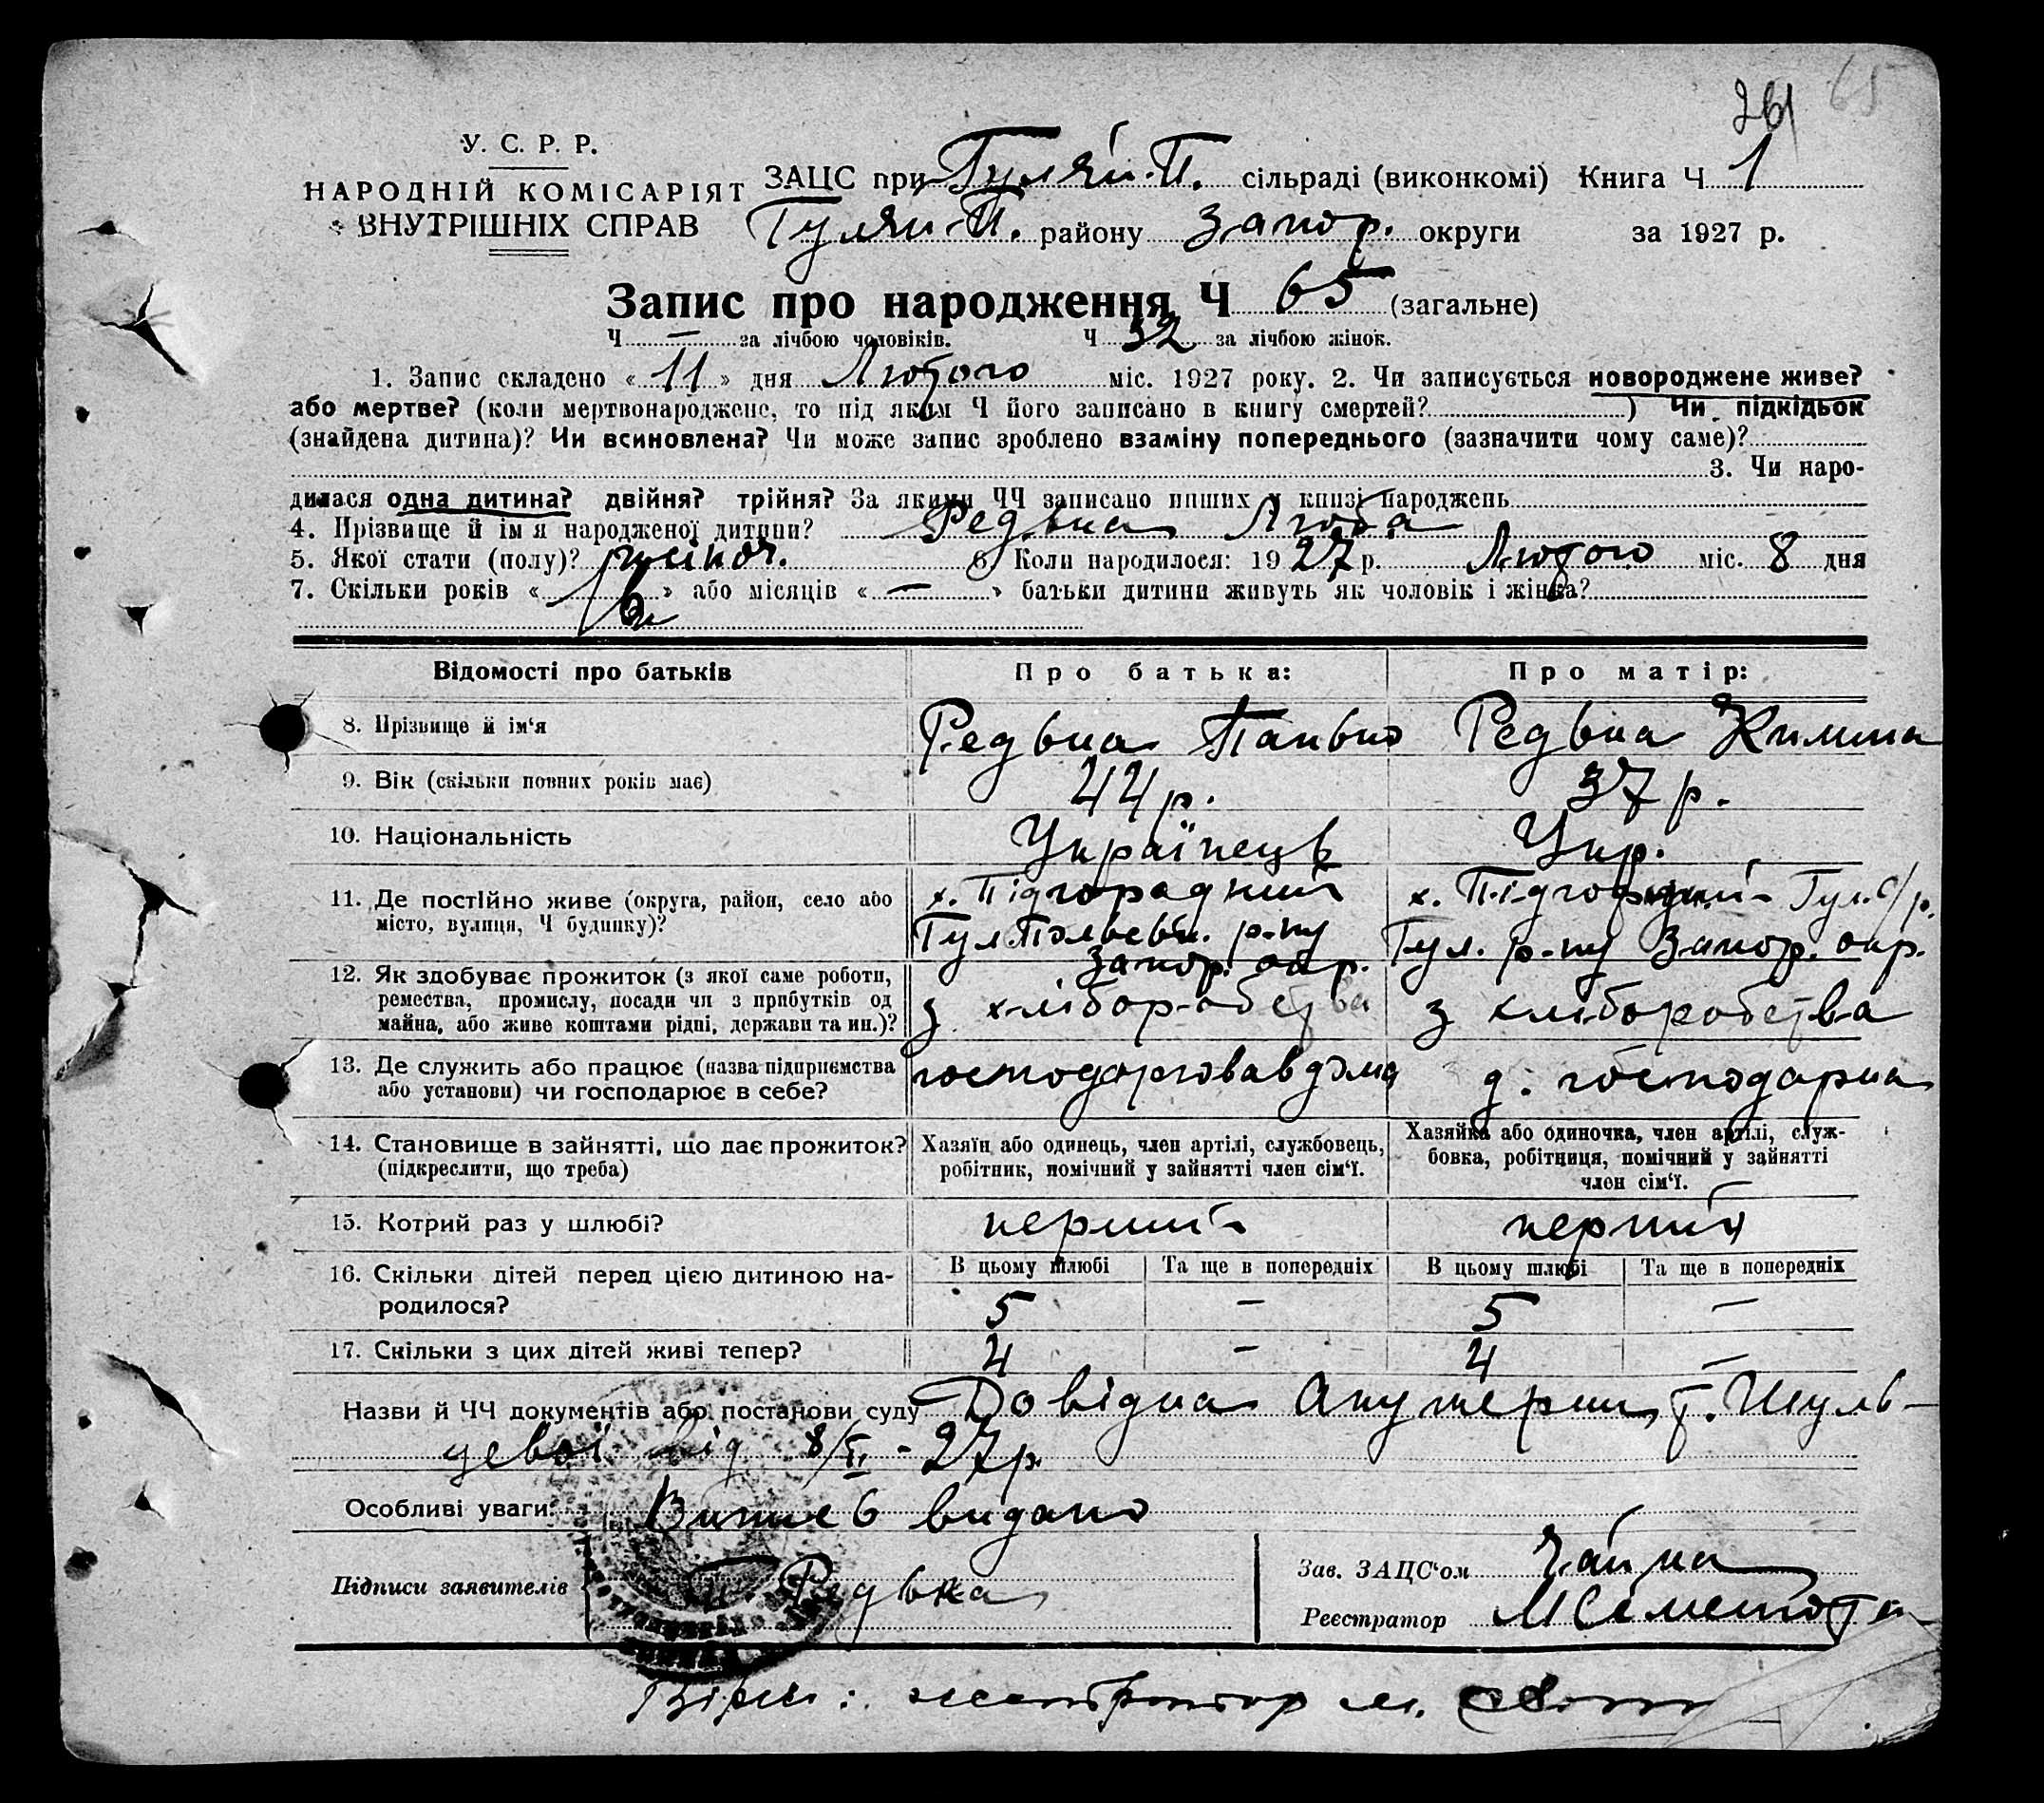 261 65
У. С. Р. Р.
НАРОДНІЙ КОМІСАРІЯТ
ВНУТРІШНІХ СПРАВ
ЗАЦС при Гуляй-П. сільраді (виконкомі) Книга Ч 1
Гуляй-П. району Запор. округи за 1927 р.
Запис про народження Ч 65 (загальне)
Ч — за лічбою чоловіків. Ч 32 за лічбою жінок.
1. Запис складено « 11 » дня Лютого міс. 1927 року. 2. Чи записується новороджене живе?
або мертве? (коли мертвонароджене, то під яким Ч його записано в книгу смертей? ) Чи підкідьок
(знайдена дитина)? Чи всиновлена? Чи може запис зроблено взаміну попереднього (зазначити чому саме)?
3. Чи наро-
дилася одна дитина? двійня? трійня? За якими ЧЧ записано инших у книзі народжень
4. Прізвище й ім'я народженої дитини? Редька Люба
5. Якої стати (полу)? жіноч. 6. Коли народилося: 1927 р. Лютого міс. 8 дня
7. Скільки років « 16 » або місяців « — » батьки дитини живуть як чоловік і жінка?
Відомості про батьків Про батька: Про матір:
8. Прізвище й ім'я Редька Панько Редька Килина
9. Вік (скільки повних років має) 44 р. 37 р.
10. Національність Українець Укр.
11. Де постійно живе (округа, район, село або х. Підгородний х. Підгородній Гул. с/р.
місто, вулиця, Ч будинку)? ГулПольськ. р-ну Гул. р-ну Запор. окр.
Запор. окр.
12. Як здобуває прожиток (з якої саме роботи,
ремества, промислу, посади чи з прибутків од з хліборобства з хліборобства
майна, або живе коштами рідні, держави та ин.)?
13. Де служить або працює (назва підприємства господарював дома д. господарка
або установи) чи господарює в себе?
14. Становище в зайнятті, що дає прожиток? Хазяїн або одинець, член артілі, службовець, Хазяйка або одиночка, член артілі, служ-
(підкреслити, що треба) робітник, помічний у зайнятті член сім'ї. бовка, робітниця, помічний у зайнятті
член сім'ї.
15. Котрий раз у шлюбі? перший перший
16. Скільки дітей перед цією дитиною на- В цьому шлюбі Та ще в попередніх В цьому шлюбі Та ще в попередніх
родилося? 5 — 5 —
17. Скільки з цих дітей живі тепер? 4 — 4 —
Назви й ЧЧ документів або постанови суду Довідка Акушерки т. Шуль-
цевої від 8/II - 27 р
Особливі уваги: Витяг видано
Підписи заявителів Редька
Зав. ЗАЦС'ом Чайка
Реєстратор
Вірно: